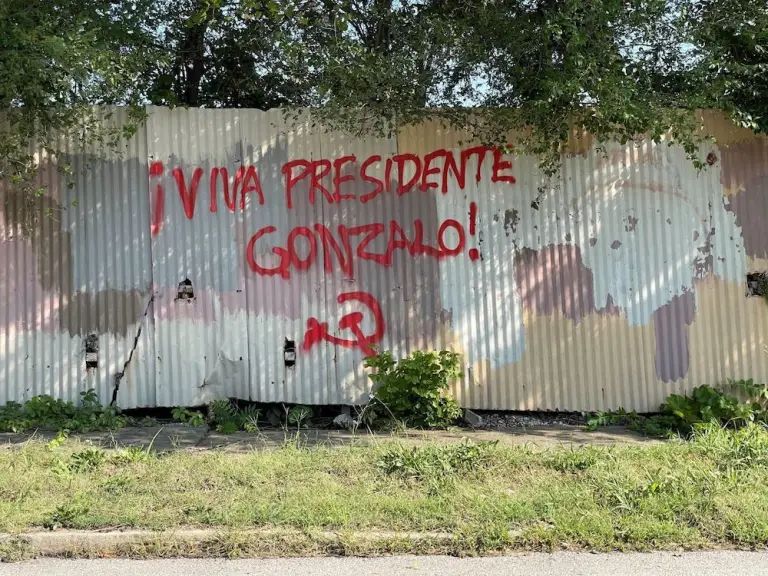 ¡VIVA PRESIDENTE
GONZALO!